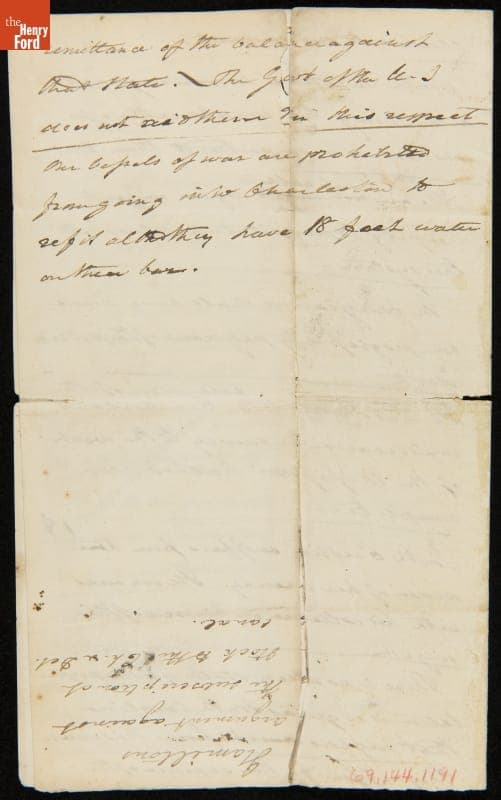 the
Henry
Ford
remittance of the balance against
that State. The Govt of the U. S
does not aid them in this respect
Our vessels of war are prohibited
from going into Charleston to
refit altho they have 18 feet water
on their bar.
Hamiltons
argument against
the subscription of
Stock to the Ch & Del.
canal.
69.144.1191